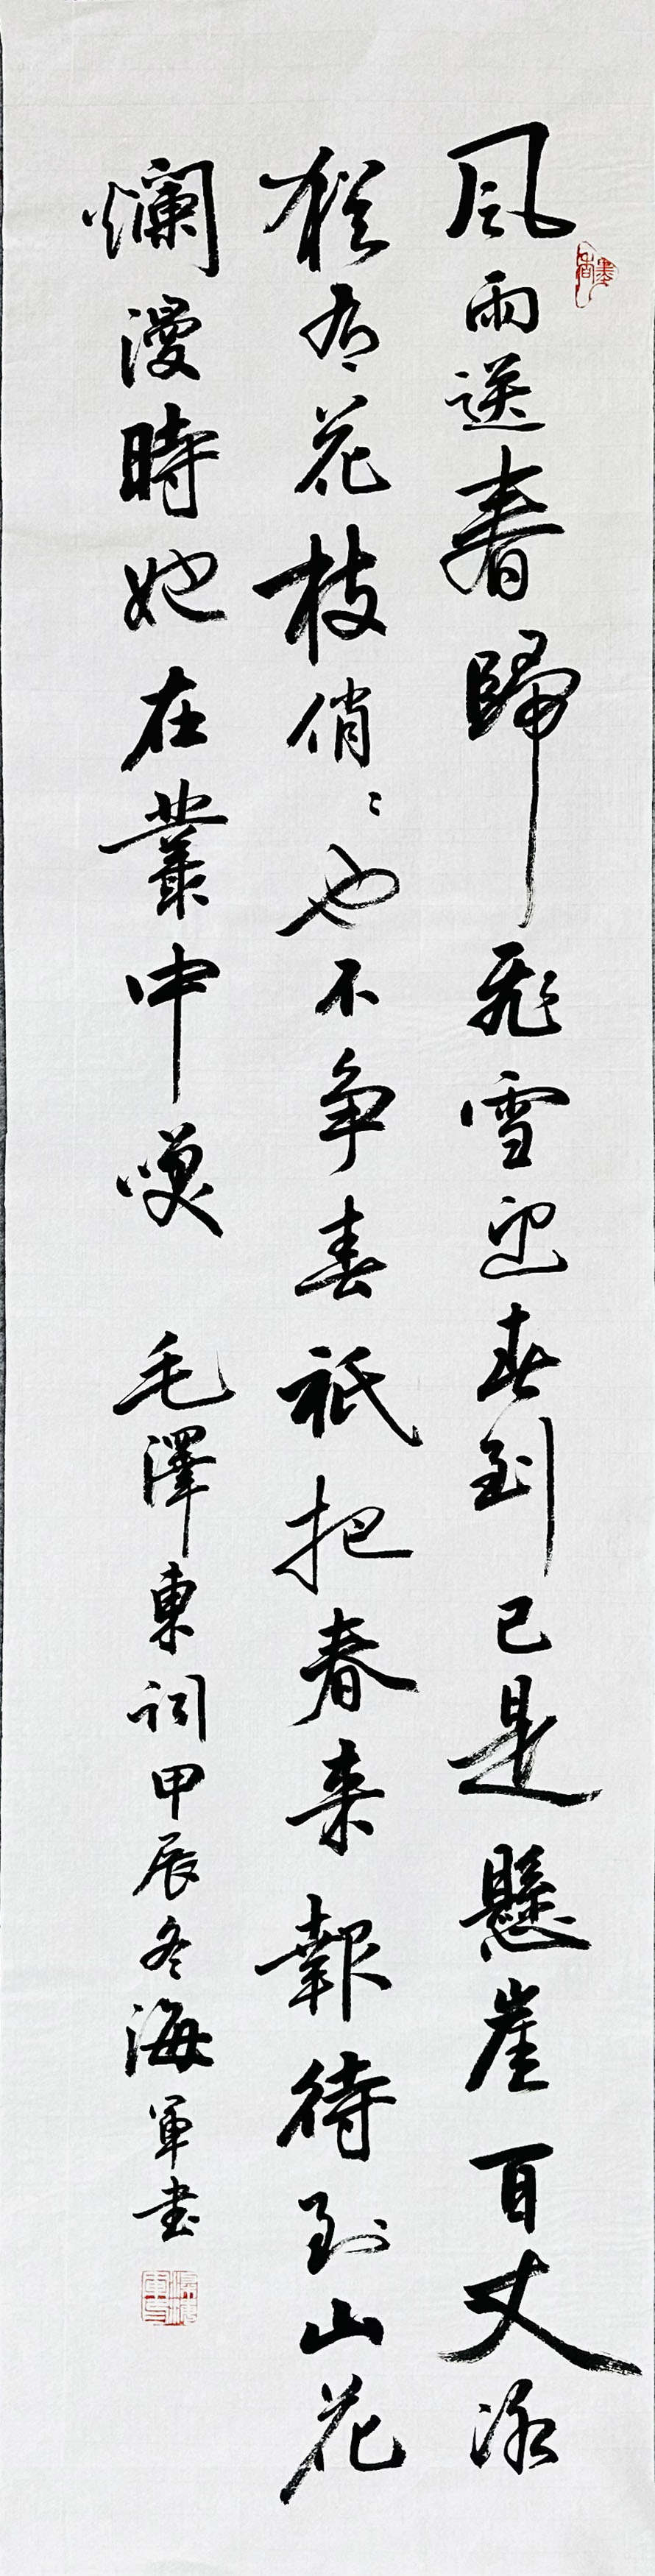 風雨送春歸飛雪迎春到已是懸崖百丈冰
猶有花枝俏〻也不争春祇把春来報待到山花
爛漫時她在叢中笑 毛澤東詞甲辰冬海軍书
墨香